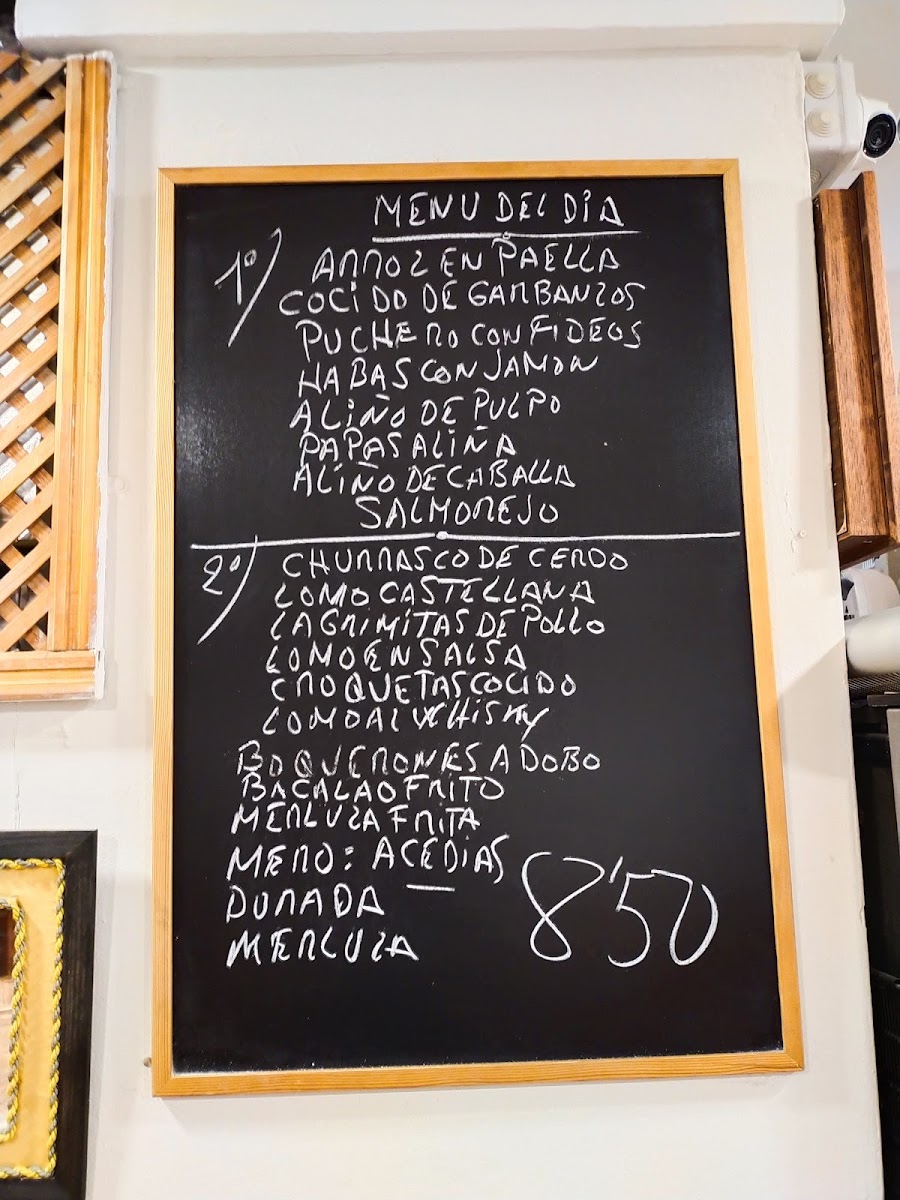 MENU DEL DIA
1º) ARROZ EN PAELLA
COCIDO DE GARBANZOS
PUCHERO CON FIDEOS
HABAS CON JAMON
ALIÑO DE PULPO
PAPAS ALIÑA
ALIÑO DE CABALLA
SALMOREJO
2º) CHURRASCO DE CERDO
LOMO CASTELLANA
LAGRIMITAS DE POLLO
LOMO EN SALSA
CROQUETAS COCIDO
LOMO AL WHISKY
BOQUERONES ADOBO
BACALAO FRITO
MERLUZA FRITA
MERO: ACEDIAS
DORADA
MERLUZA
8'50